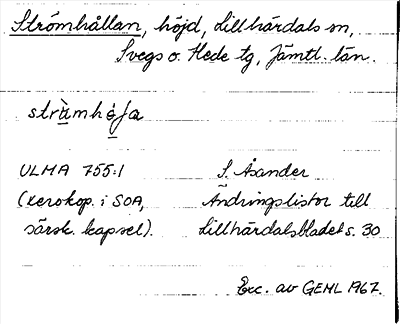 Strömhållan, höjd, Lillhärdals sn,
Svegs o. Hede tg, Jämtl. län.
strämhǻļa
ULMA 755:1 S. Åsander
(xerokop. i SOA, Ändringslistor till
särsk. kapsel). Lillhärdalsbladet s. 30
Exc. av GEHL 1967.